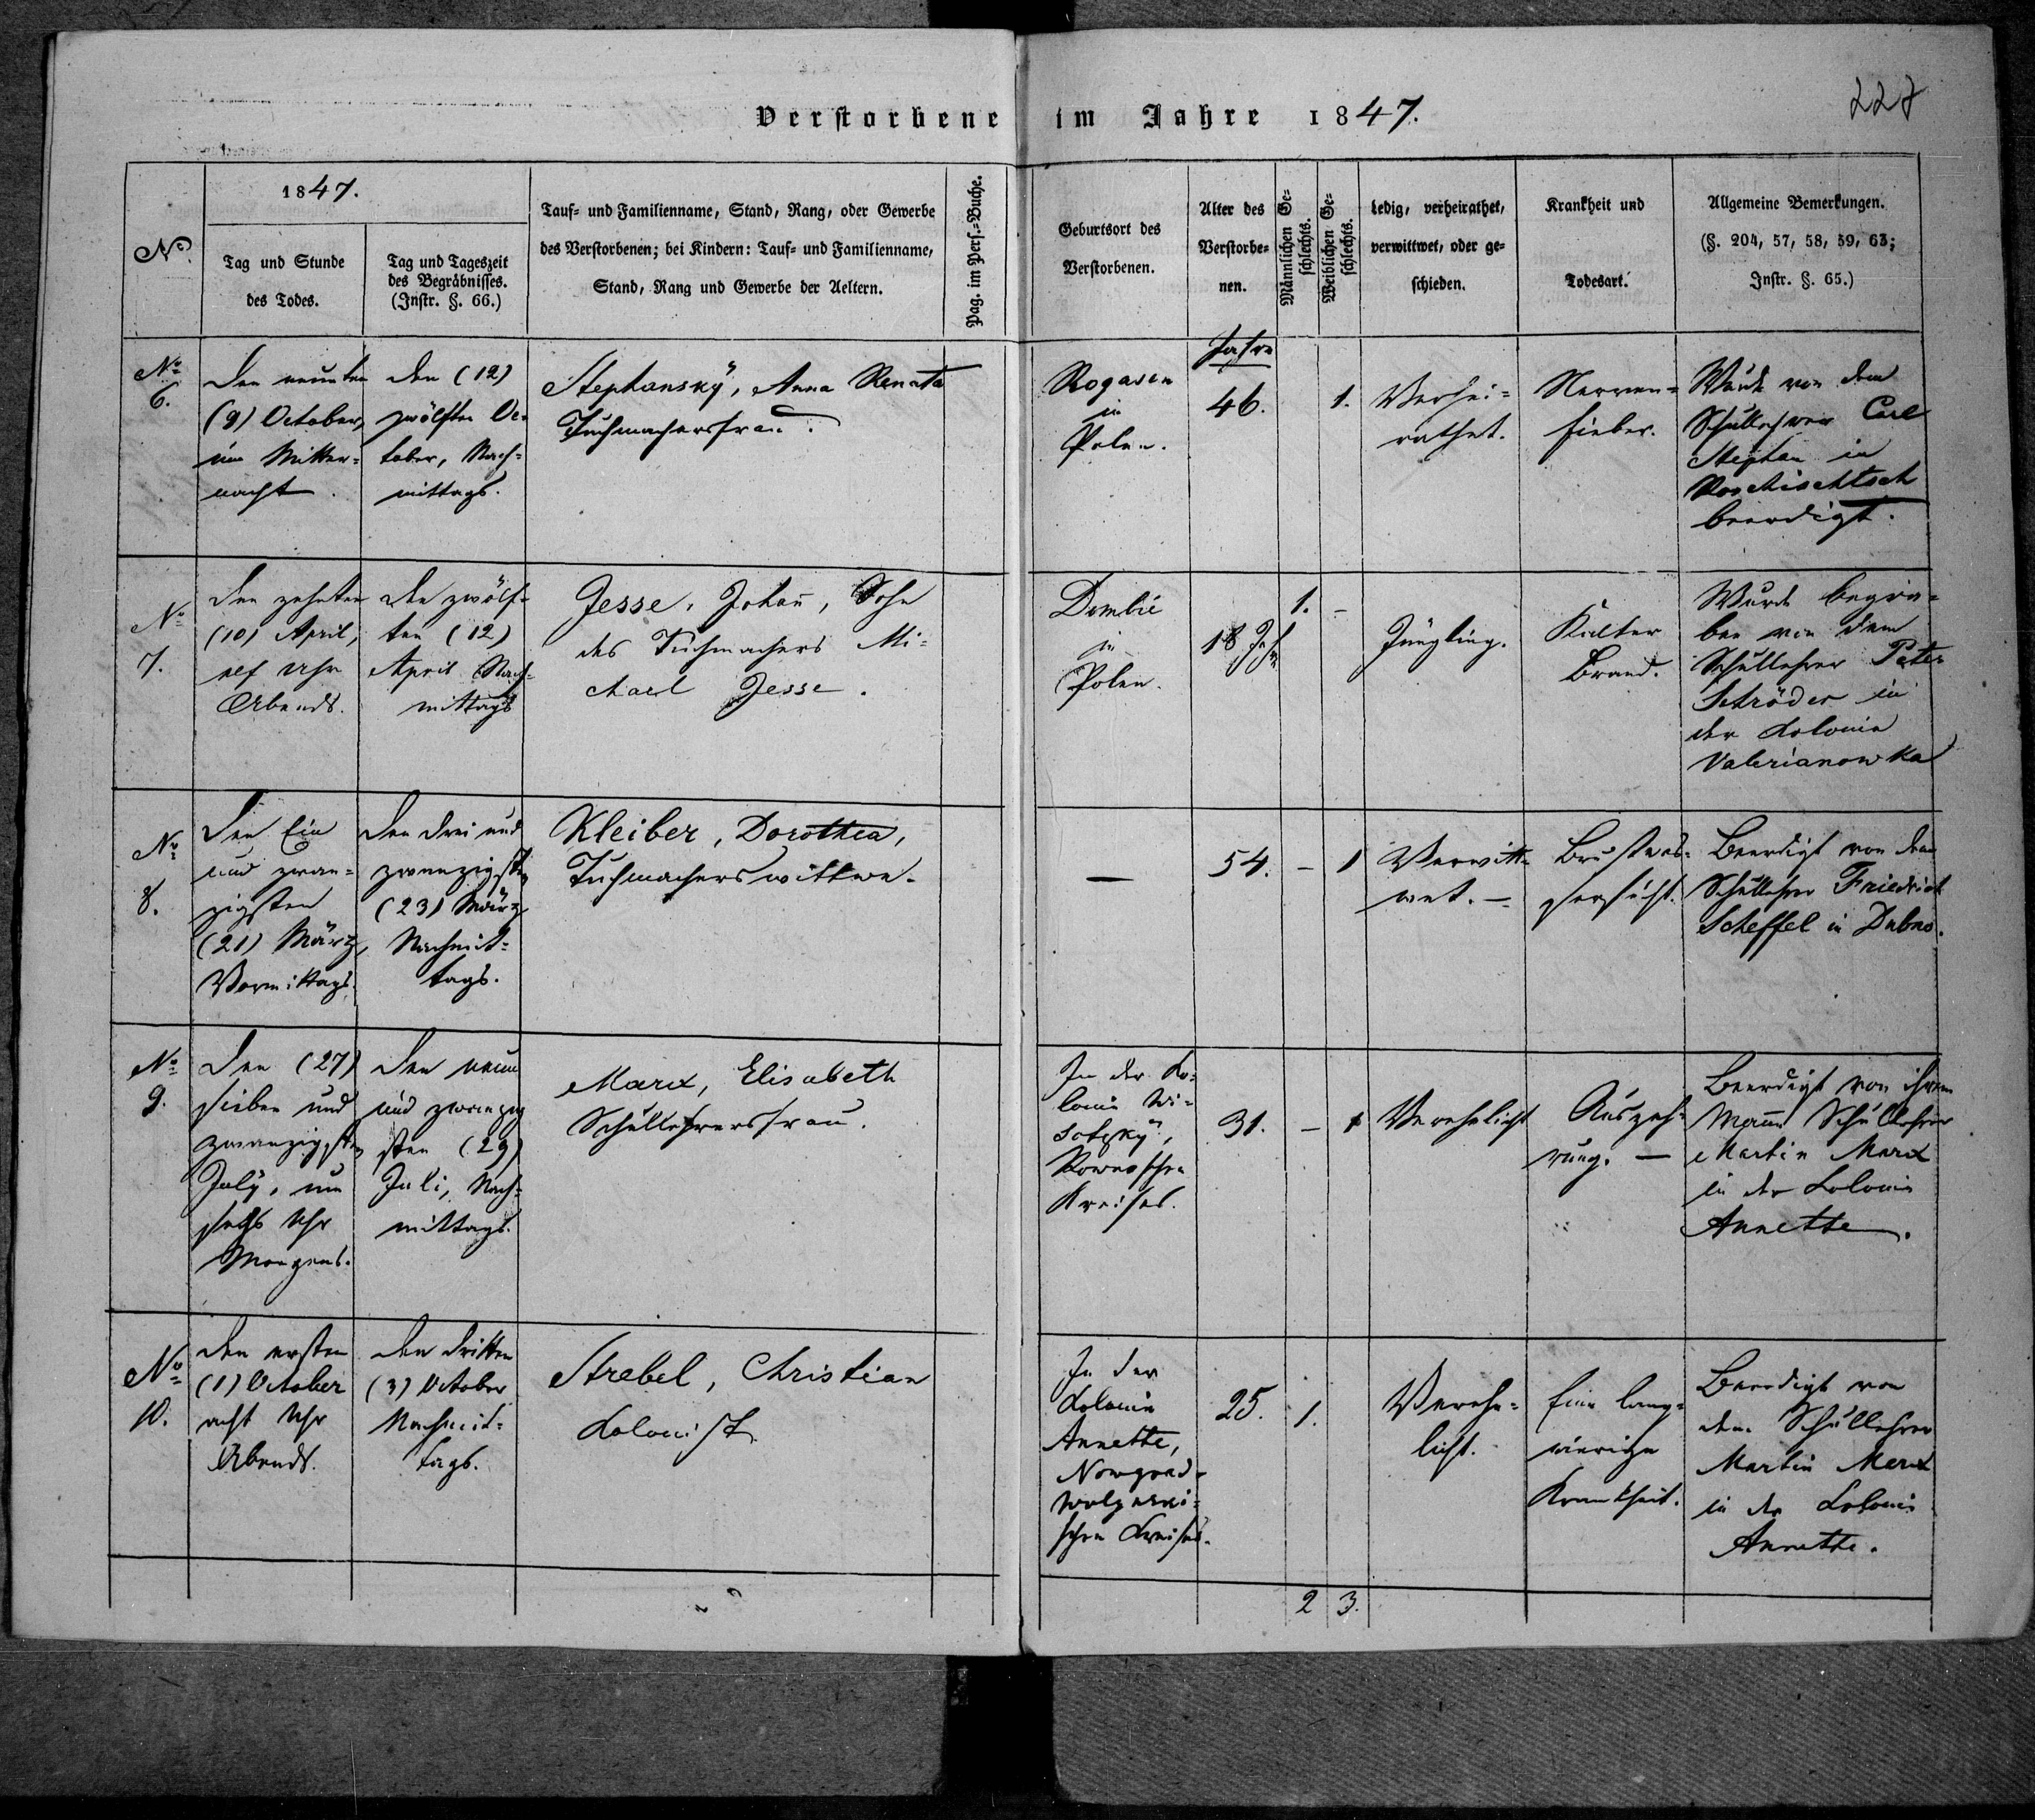 Verstorbene im Jahre 1847.
227
No.
1847.
Tag und Stunde
des Todes.
Tag und Tageszeit
des Begräbnisses.
(Instr. §. 66.)
Tauf- und Familienname, Stand, Rang, oder Gewerbe
des Verstorbenen; bei Kindern: Tauf- und Familienname,
Stand, Rang und Gewerbe der Aeltern.
Pag. im Pers.-Buche.
Geburtsort des
Verstorbenen.
Alter des
Verstorbe-
nen.
Männlichen Ge-
schlechts.
Weiblichen Ge-
schlechts.
Ledig, verheirathet,
verwittwet, oder ge-
schieden.
Krankheit und
Todesart.
Allgemeine Bemerkungen.
(§. 204, 57, 58, 59, 63;
Instr. §. 65.)
No
6.
Den neunten
(9) October,
um Mitter-
nacht.
Den (12)
zwölften Oc-
tober, Nach-
mittags.
Stephansky, Anna Renata
Tuchmachersfrau.
Rogasen
in
Polen.
Jahre
46.
1.
Verhei-
rathet.
Nerven-
fieber.
Wurde von dem
Schullehrer Carl
Stephan in
Roschischtsch
beerdigt.
No
7.
Den zehnten
(10) April,
elf Uhr
Abends.
Den zwölf-
ten (12)
April Nach-
mittags
Jesse, Johañ, Sohn
des Tuchmachers Mi-
chael Jesse.
Dombie
in
Polen.
18 Jahre
1. –
Jüngling.
Kalter
Brand.
Wurde begra-
ben von dem
Schullehrer Peter
Schröder in
der Kolonie
Valerianowka
No
8.
Den Ein
und zwan-
zigsten
(21) März,
Vormittags.
Den drei und
zwanzigsten
(23) März
Nachmit-
tags.
Kleiber, Dorothea,
Tuchmacherswittwe.
—
54.
– 1
Verwitt-
wet. –
Brustwas-
sersucht.
Beerdigt von dem
Schullehrer Friedrich
Scheffel in Dubno.
No
9.
Den (27)
sieben und
zwanzigsten
July, um
sechs Uhr
Morgens.
Den neun
und zwanzig
sten (29)
Juli, Nach-
mittags.
Marx, Elisabeth
Schullehrersfrau.
In der Ko-
lonie Wi-
sotzky,
Rownoschen
Kreises.
31.
– 1
Verehelicht
Auszeh-
rung. —
Beerdigt von ihrem
Mann Schullehrer
Martin Marx
in der Kolonie
Annette.
No
10.
Den ersten
(1) October
acht Uhr
Abends.
Den dritten
(3) October
Nachmit-
tags.
Strebel, Christian
Kolonist.
In der
Kolonie
Annette,
Nowgrad-
wolynski-
schen Kreises.
25.
1.
Verehe-
licht.
Eine lang-
wierige
Krankheit.
Beerdigt von
dem Schullehrer
Martin Marx
in der Kolonie
Annette.
2 3.